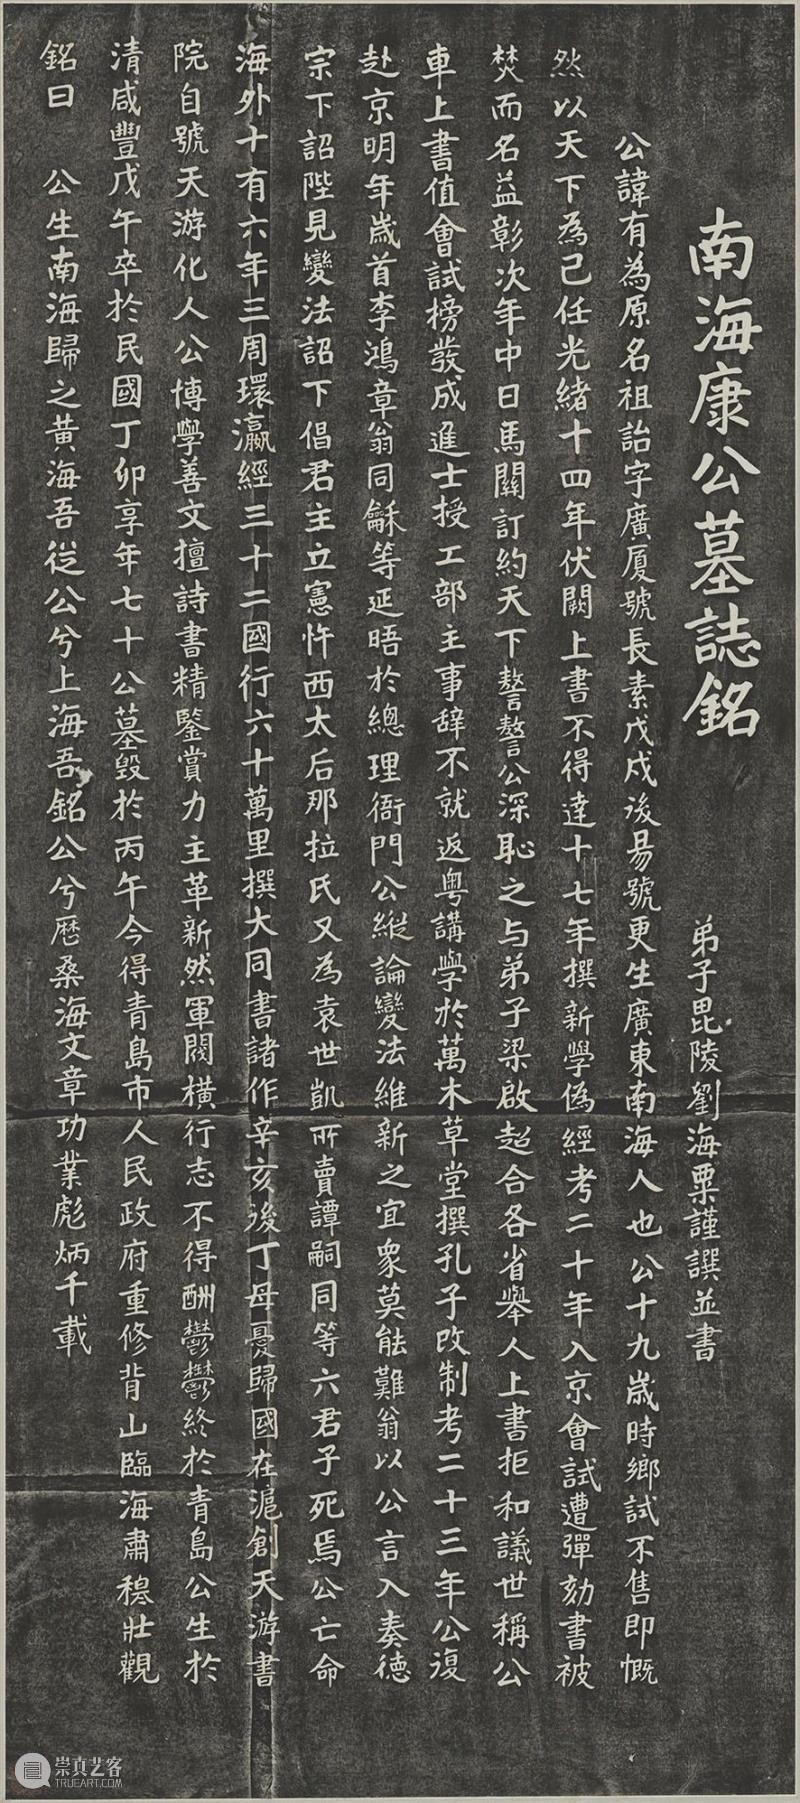 南海康公墓誌銘
弟子毘陵劉海粟謹譔並書
公諱有為原名祖詒字廣厦號長素戊戍後易號更生廣東南海人也公十九歲時鄉試不售即慨
然以天下為己任光緒十四年伏闕上書不得達十七年撰新學偽經考二十年入京會試遭彈劾書被
焚而名益彰次年中日馬關訂約天下謷謷公深恥之与弟子梁啟超合各省舉人上書拒和議世稱公
車上書值會試榜發成進士授工部主事辞不就返粵講學於萬木草堂撰孔子改制考二十三年公復
赴京明年歲首李鴻章翁同龢等延晤於總理衙門公縱論變法維新之宜衆莫能難翁以公言入奏德
宗下詔陛見變法詔下倡君主立憲忤西太后那拉氏又為袁世凱所賣譚嗣同等六君子死焉公亡命
海外十有六年三周環瀛經三十二國行六十萬里撰大同書諸作辛亥後丁母憂歸國在滬創天游書
院自號天游化人公博學善文擅詩書精鑒賞力主革新然軍閥橫行志不得酬鬱鬱終於青島公生於
清咸豐戊午卒於民國丁卯享年七十公墓毀於丙午今得青島市人民政府重修背山臨海肅穆壯觀
銘曰　公生南海歸之黄海吾從公兮上海吾銘公兮歷桑海文章功業彪炳千載
崇真艺客
TRUEART.COM